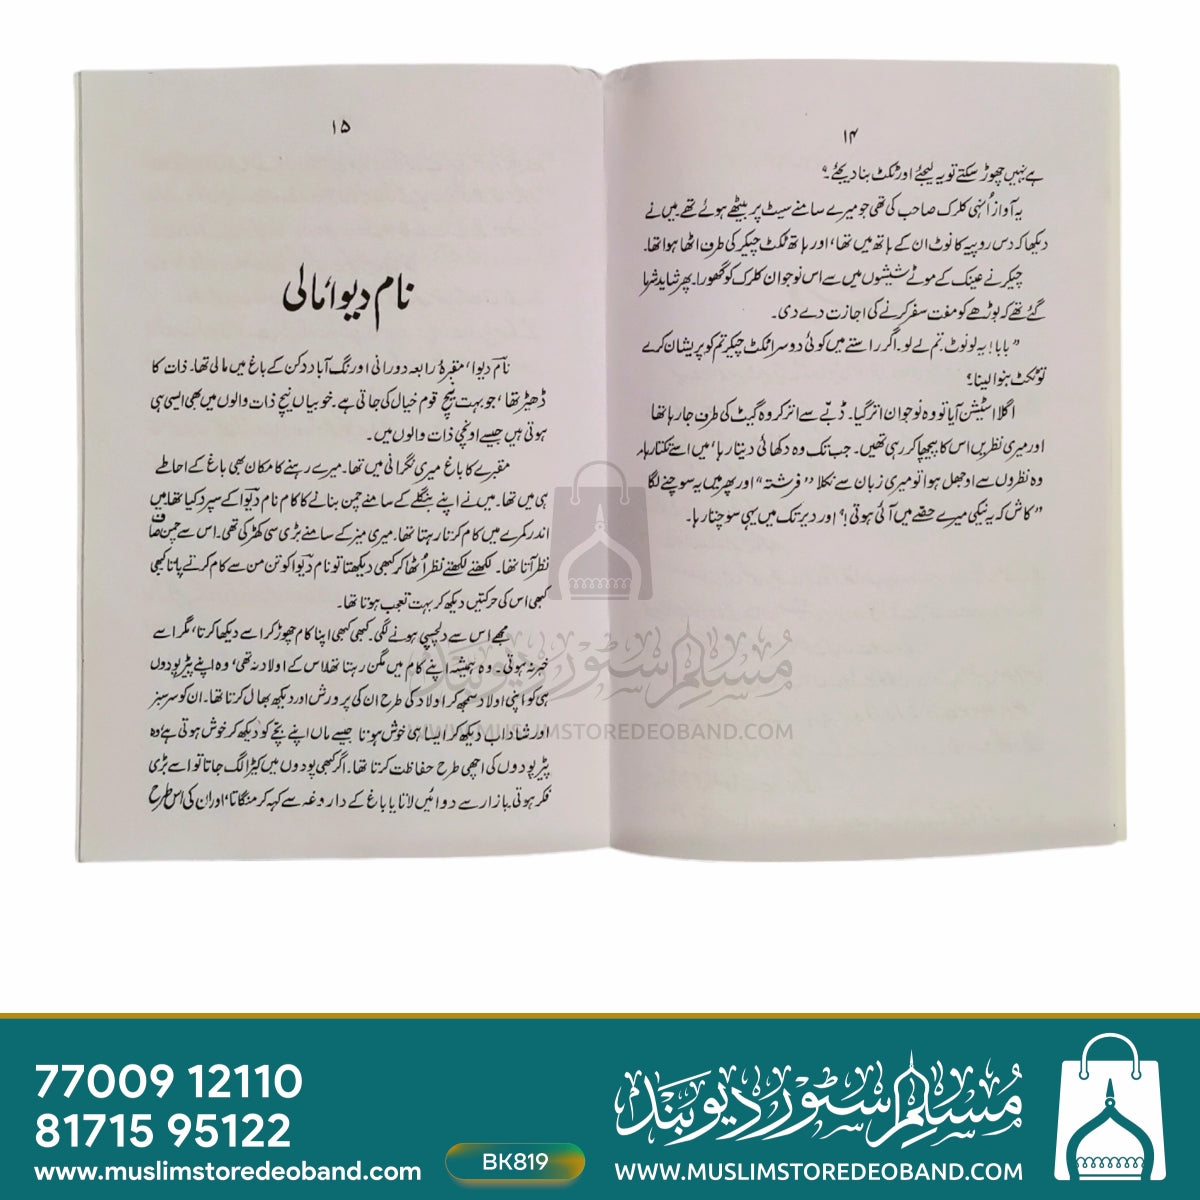 ۱۴
ہے نہیں چھوڑ سکتے تو یہ لیجئے اور ٹکٹ بنا دیجئے ۔؟
یہ آواز اُنہی کلرک صاحب کی تھی جو میرے سامنے سیٹ پر بیٹھے ہوئے تھے۔ میں نے
دیکھا کہ دس روپیہ کا نوٹ ان کے ہاتھ میں تھا، اور ہاتھ ٹکٹ چیکر کی طرف اٹھا ہوا تھا۔
چیکر نے عینک کے موٹے شیشوں میں سے اس نوجوان کلرک کو گھورا۔ پھر شاید شرما
گئے تھے کہ بوڑھے کو مفت سفر کرنے کی اجازت دے دی۔
”بابا! یہ لو نوٹ۔ تم لے لو۔ اگر راستے میں کوئی دوسرا ٹکٹ چیکر تم کو پریشان کرے
تو ٹکٹ بنوا لینا؟
اگلا اسٹیشن آیا تو وہ نوجوان اتر گیا۔ ڈبّے سے اتر کر وہ گیٹ کی طرف جا رہا تھا
اور میری نظریں اس کا پیچھا کر رہی تھیں۔ جب تک وہ دکھائی دیتا رہا، میں اسے تکتا رہا۔
وہ نظروں سے اوجھل ہوا تو میری زبان سے نکلا ”فرشتہ“ اور پھر میں یہ سوچنے لگا
”کاش کہ یہ نیکی میرے حصّے میں آئی ہوتی!؟ اور دیر تک میں یہی سوچتا رہا۔
۱۵
نام دیو۔ مالی
نام دیو، مقبرۂ رابعہ دورانی اورنگ آباد دکن کے باغ میں مالی تھا۔ ذات کا
ڈھیڑ تھا، جو بہت نیچ قوم خیال کی جاتی ہے۔ خوبیاں نیچ ذات والوں میں بھی ایسی ہی
ہوتی ہیں جیسے اونچی ذات والوں میں۔
مقبرے کا باغ میری نگرانی میں تھا۔ میرے رہنے کا مکان بھی باغ کے احاطے
ہی میں تھا۔ میں نے اپنے بنگلے کے سامنے چمن بنانے کا کام نام دیو کے سپرد کیا تھا۔ میں
اندر کمرے میں کام کرتا رہتا تھا۔ میری میز کے سامنے بڑی سی کھڑکی تھی۔ اس سے چمن صاف
نظر آتا تھا۔ لکھتے لکھتے نظر اُٹھا کر کبھی دیکھتا تو نام دیو کو تن من سے کام کرتے پاتا کبھی
کبھی اس کی حرکتیں دیکھ کر بہت تعجب ہوتا تھا۔
مجھے اس سے دلچسپی ہونے لگی۔ کبھی کبھی اپنا کام چھوڑ کر اسے دیکھا کرتا، مگر اسے
خبر نہ ہوتی۔ وہ ہمیشہ اپنے کام میں مگن رہتا تھا۔ اس کے اولاد نہ تھی، وہ اپنے پیڑ پودوں
ہی کو اپنی اولاد سمجھ کر اولاد کی طرح ان کی پرورش اور دیکھ بھال کرتا تھا۔ ان کو سرسبز
اور شاداب دیکھ کر ایسا ہی خوش ہوتا جیسے ماں اپنے بچّے کو دیکھ کر خوش ہوتی ہے۔ وہ
پیڑ پودوں کی اچھی طرح حفاظت کرتا تھا۔ اگر کبھی پودوں میں کیڑا لگ جاتا تو اسے بڑی
فکر ہوتی۔ بازار سے دوائیں لاتا یا باغ کے داروغہ سے کہہ کر منگاتا، اور ان کی اس طرح
مسلم سٹور دیوبند
WWW.MUSLIMSTOREDEOBAND.COM
77009 12110
81715 95122
www.muslimstoredeoband.com
BK819
مسلم سٹور دیوبند
WWW.MUSLIMSTOREDEOBAND.COM